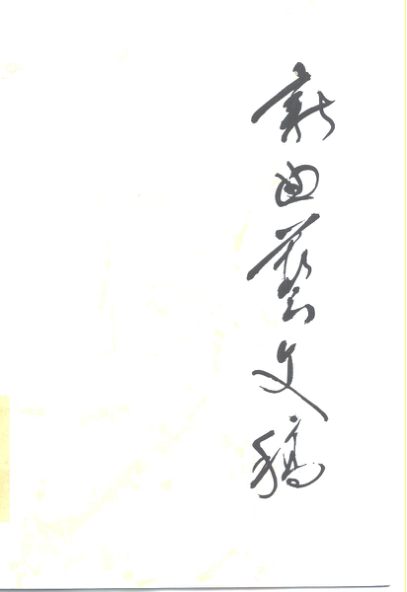 新曲藝文稿